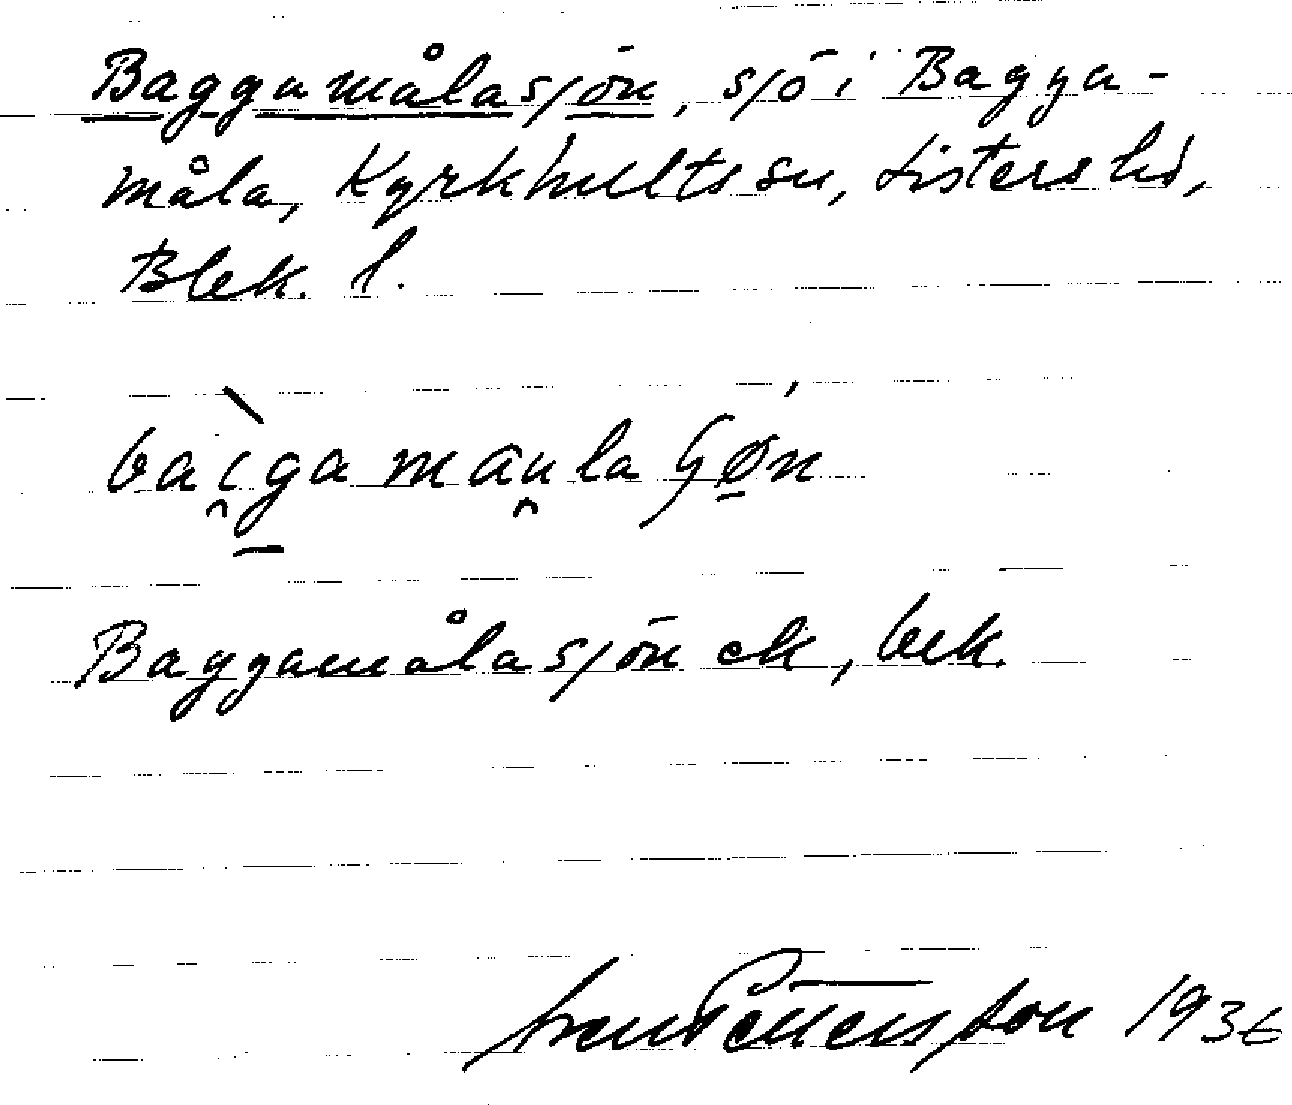 Baggamålasjön, sjö i Bagga-
måla, Kyrkhults sn, Listers hd,
Blek. l.
bài̯gamau̯laʃøn
Baggamålasjön ek, bek.
Pettersson 1936